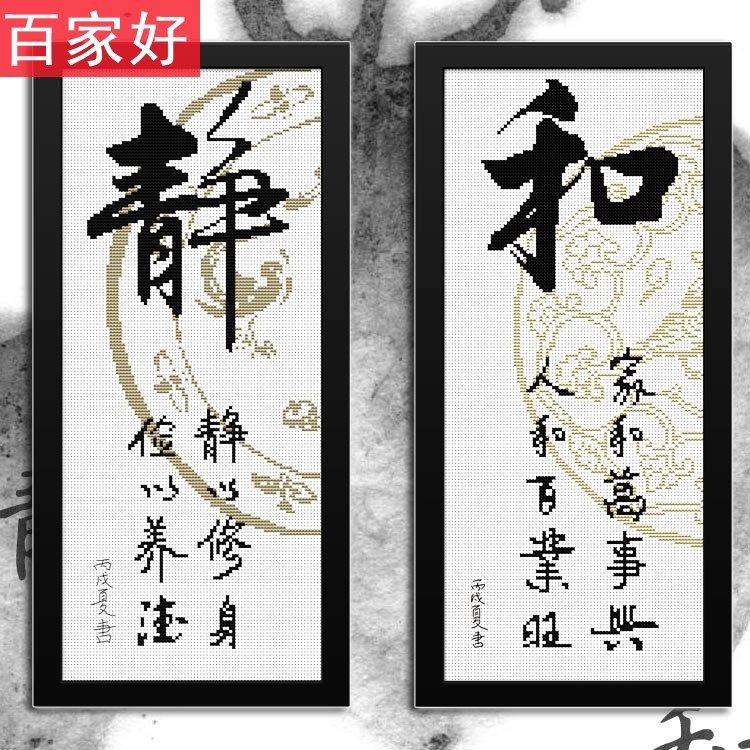 百家好
静
静以修身
俭以养德
丙戌夏書
和
家和萬事興
人和百業旺
丙戌夏書